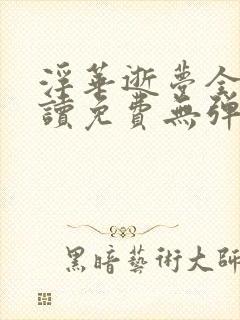 淫華逝夢全
讀免費無彈
黑暗藝術大師